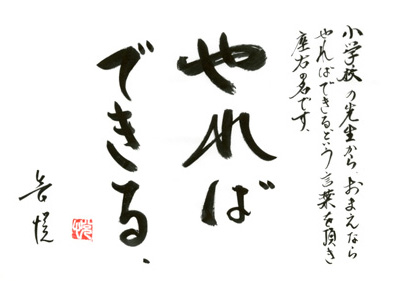 小学校の先生から、おまえなら
やればできるという言葉を頂き
座右の名です。
やれば
できる、